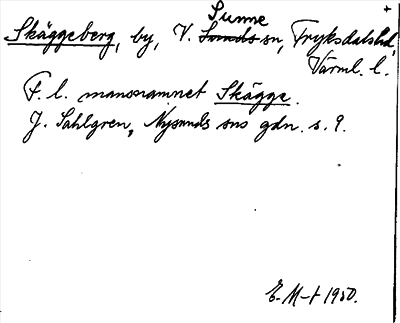 Sunne
Skäggeberg, by, V. Sunds sn, Fryksdals hd,
Värml. l.
F. l. mansnamnet Skägge.
J. Sahlgren, Nysunds sns gdn. s. 9.
E. M-t 1950.